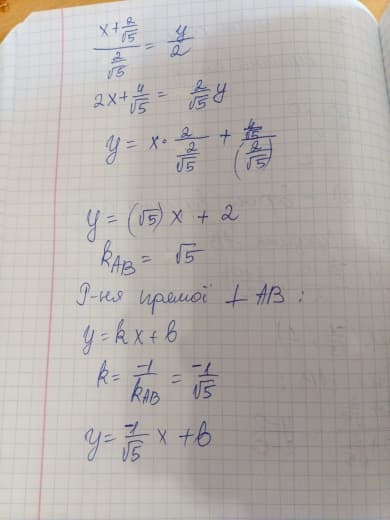 (x + 2/√5) / (2/√5) = y/2
2x + 4/√5 = 2/√5 y
y = x · 2/(2/√5) + (4/√5)/(2/√5)
y = (√5) x + 2
k_AB = √5
Р-ння прямої ⊥ AB :
y = kx + b
k = -1/k_AB = -1/√5
y = -1/√5 x + b